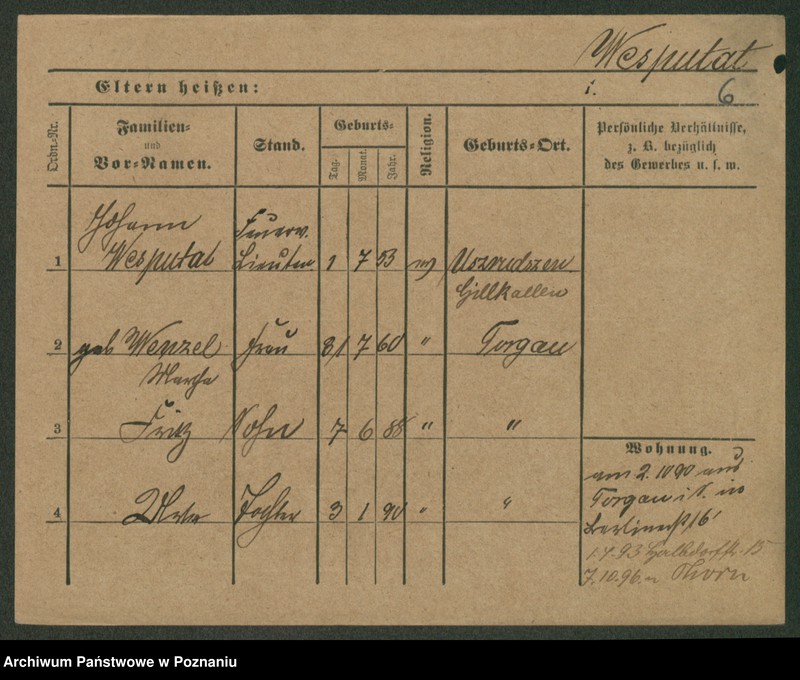 Wesputat
Eltern heißen: i. 6
Ordn-Nr. Familien- und Vor-Namen. Stand. Geburts- Tag. Monat. Jahr. Religion. Geburts-Ort. Persönliche Verhältnisse, z. B. bezüglich des Gewerbes u. s. w.
Johann Feuerw.
1 Wesputat Lieuten 1 7 53 ev Uszrudszen
Pillkallen
2 geb Wenzel Frau 31 7 60 " Torgau
Martha
3 Fritz Sohn 7 6 88 " "
Wohnung.
am 2.10 90 aus
Torgau i S. in
4 Tochter 3 1 90 " "
Berlinerst 16
1.4.93 15
7.10.96. n Thorn
Archiwum Państwowe w Poznaniu